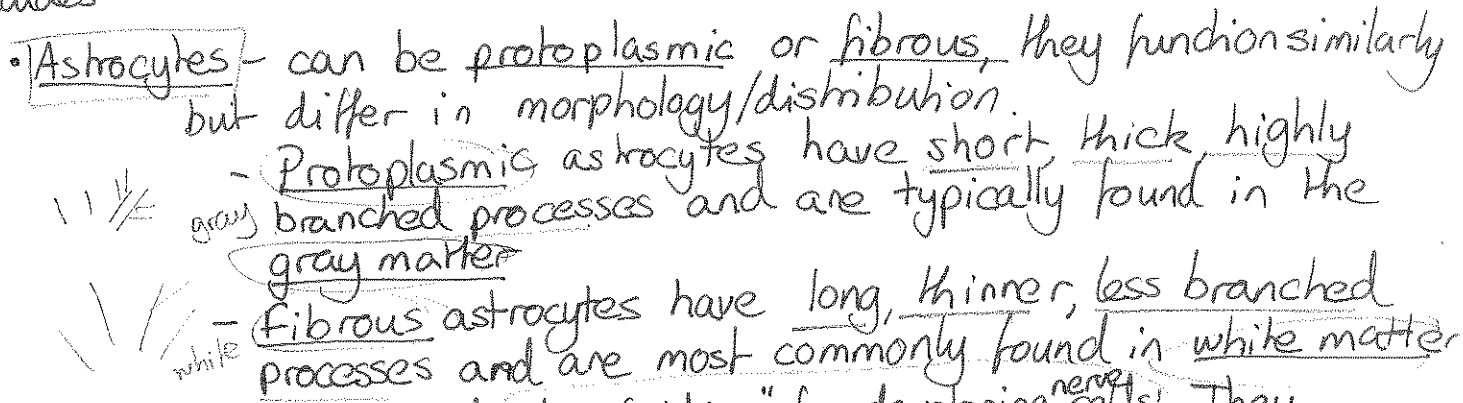 • Astrocytes - can be protoplasmic or fibrous, they function similarly
but differ in morphology/distribution.
- Protoplasmic astrocytes have short, thick, highly
gray branched processes and are typically found in the
gray matter
- fibrous astrocytes have long, thinner, less branched
white processes and are most commonly found in white matter
nerve
They